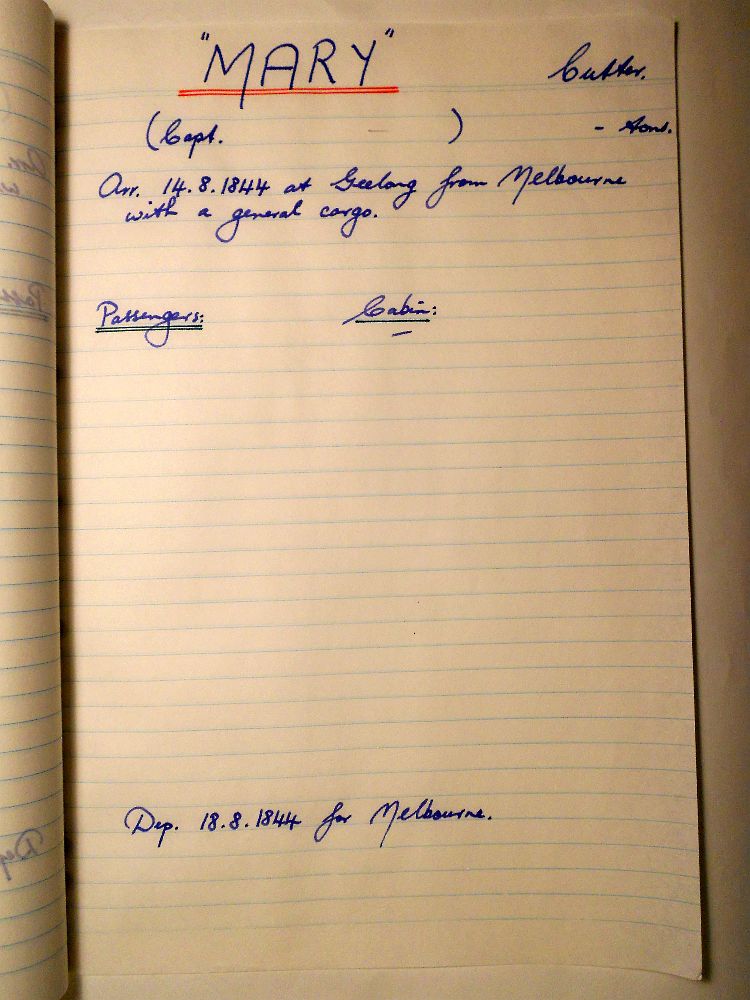 "MARY" Cutter.
(Capt. — ) - tons.
Arr. 14.8.1844 at Geelong from Melbourne
with a general cargo.
Passengers: Cabin:
—
Dep. 18.8.1844 for Melbourne.